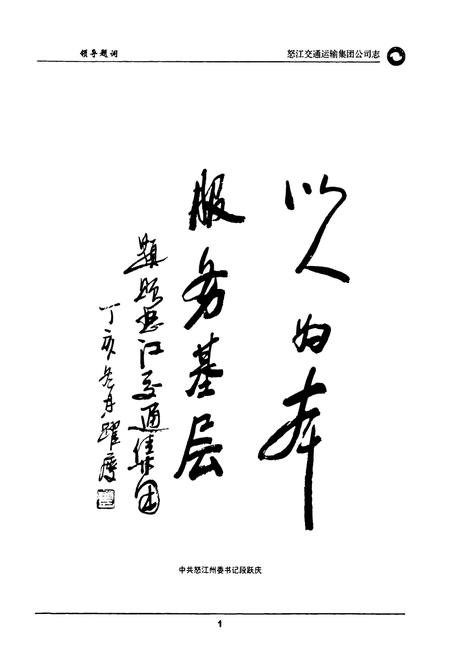 领导题词
怒江交通运输集团公司志
以人为本
服务基层
题怒江交通集团
丁亥跃庆
中共怒江州委书记段跃庆
1